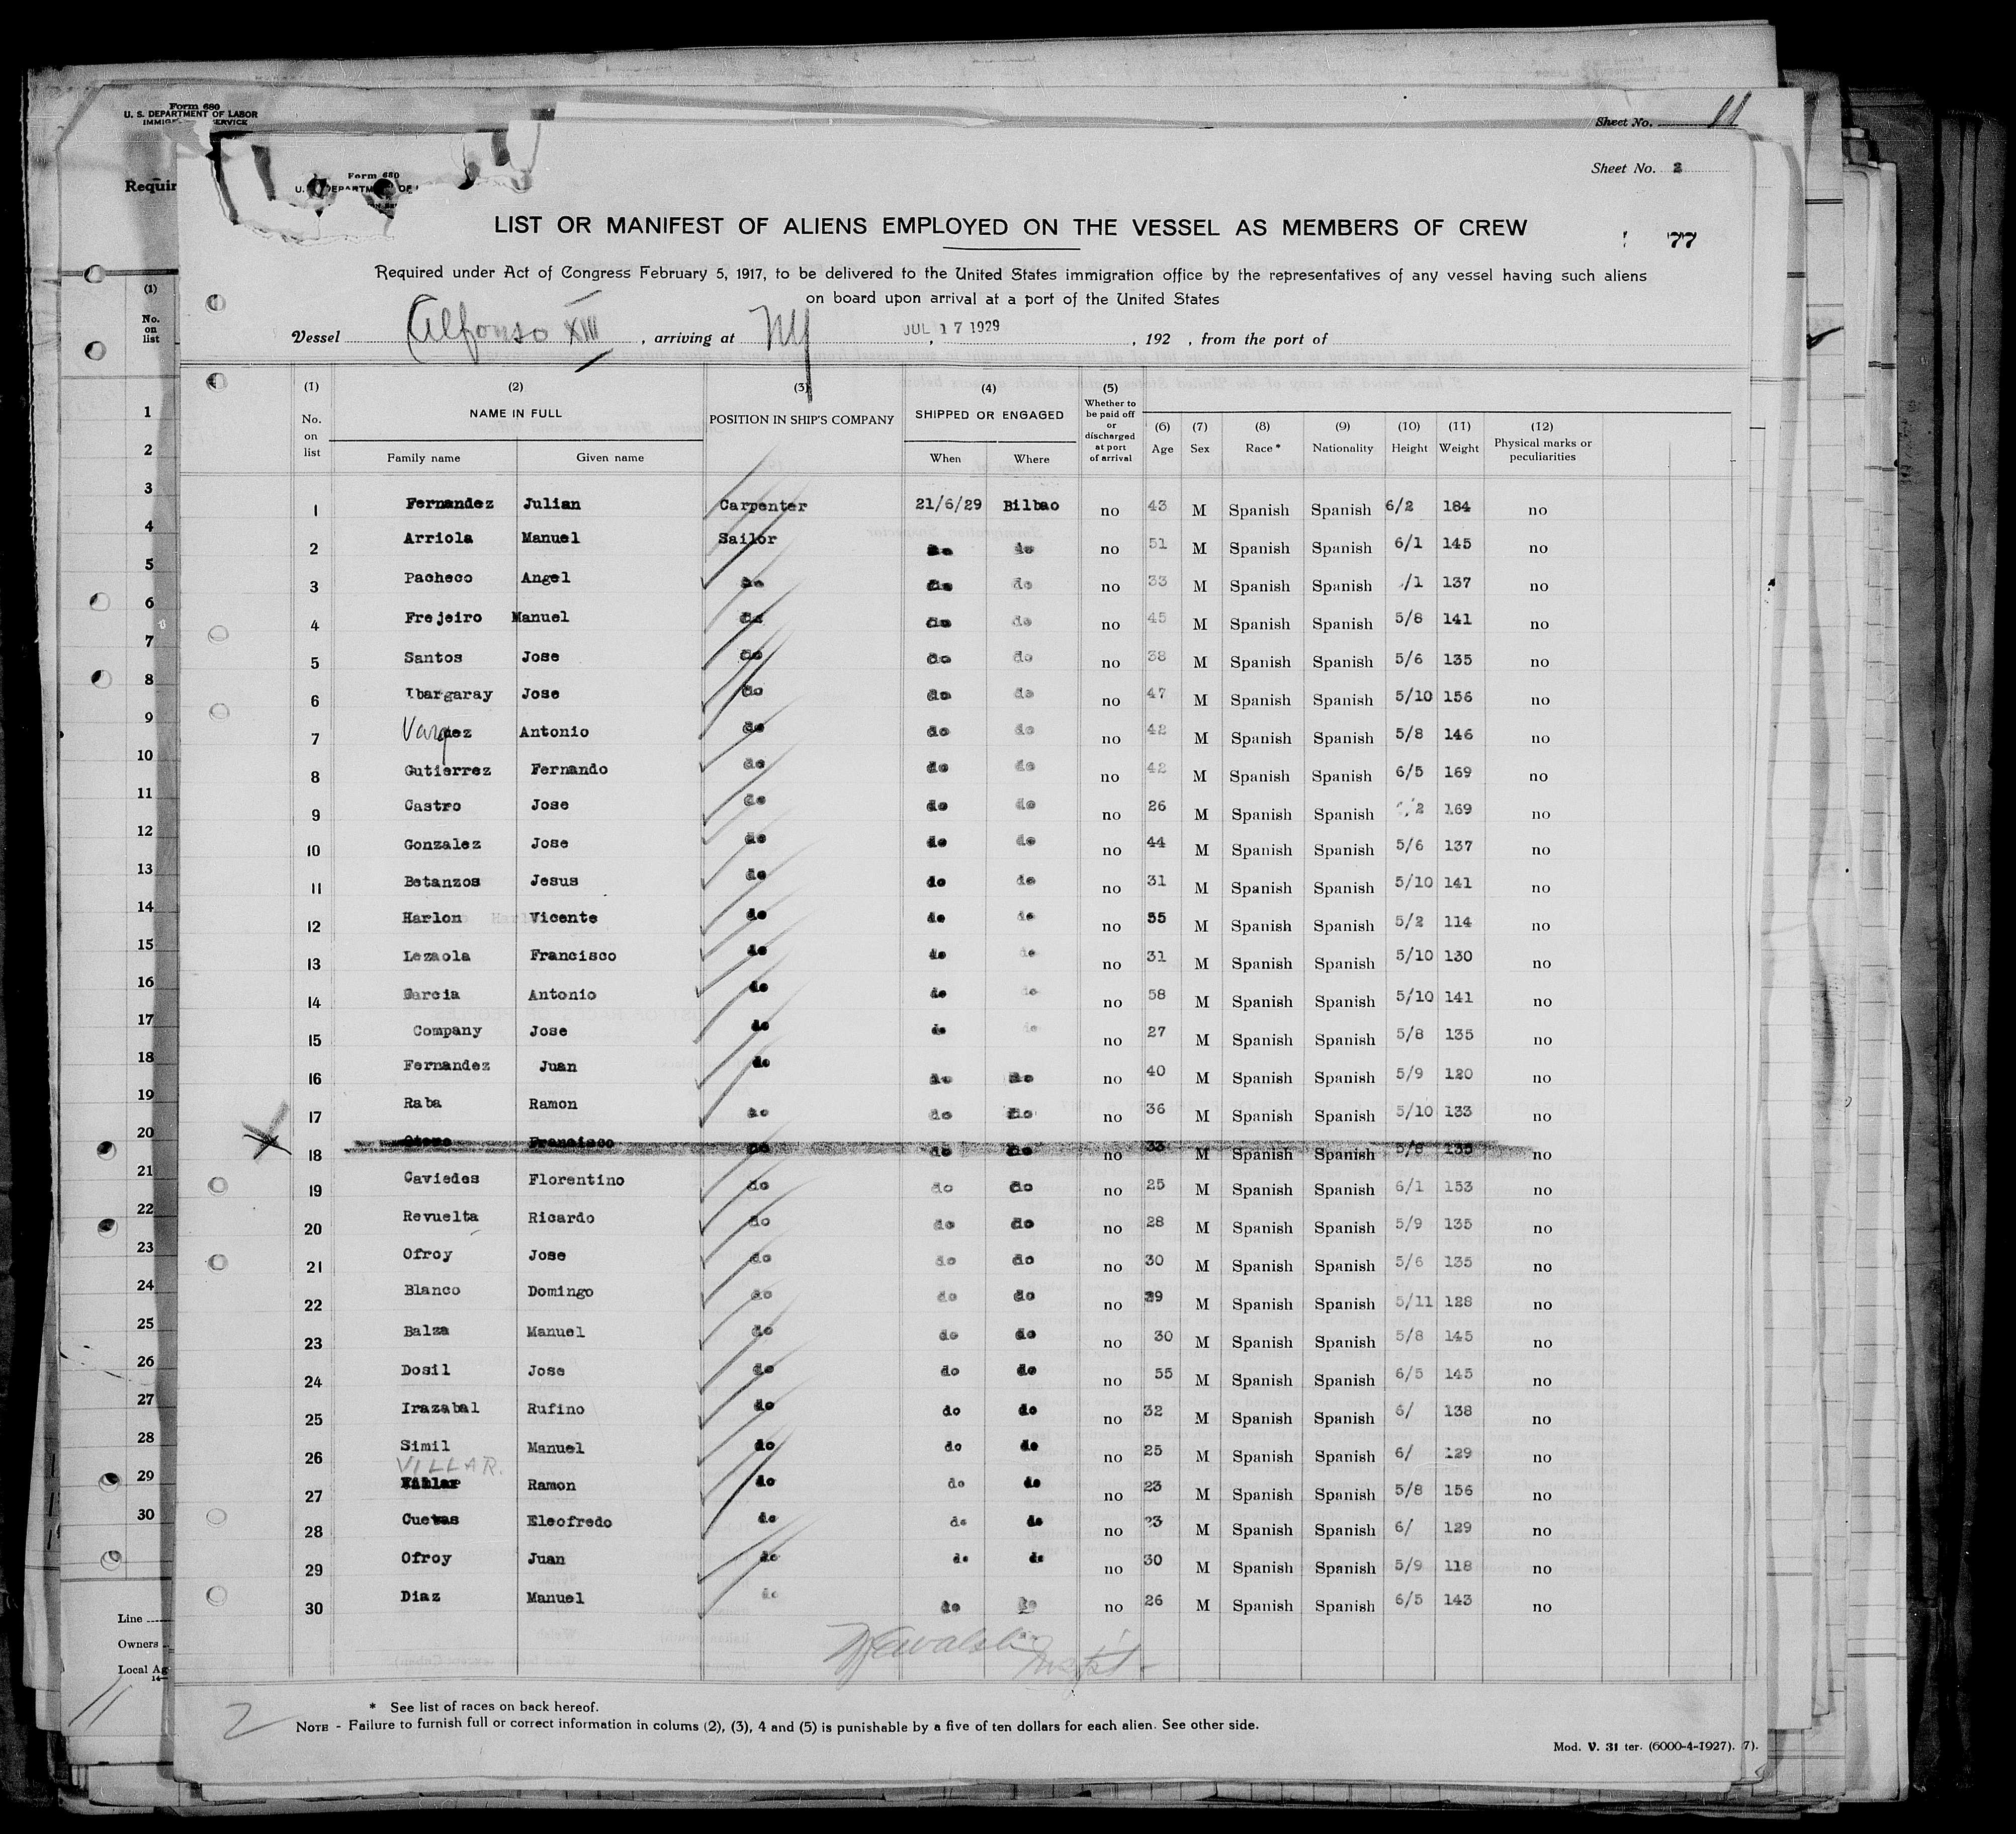 Form 680
U. S. DEPARTMENT OF LABOR
Sheet No. 11
Form 680
Sheet No. 2
LIST OR MANIFEST OF ALIENS EMPLOYED ON THE VESSEL AS MEMBERS OF CREW
77
Required under Act of Congress February 5, 1917, to be delivered to the United States immigration office by the representatives of any vessel having such aliens
on board upon arrival at a port of the United States
Vessel Alfonso XIII, arriving at NY, JUL 17 1929, 192 , from the port of
(1) No. on list
(2) NAME IN FULL Family name Given name
(3) POSITION IN SHIP'S COMPANY
(4) SHIPPED OR ENGAGED When Where
(5) Whether to be paid off or discharged at port of arrival
(6) Age
(7) Sex
(8) Race *
(9) Nationality
(10) Height
(11) Weight
(12) Physical marks or peculiarities
1 Fernandez Julian Carpenter 21/6/29 Bilbao no 43 M Spanish Spanish 6/2 184 no
2 Arriola Manuel Sailor do do no 51 M Spanish Spanish 6/1 145 no
3 Pacheco Angel do do do no 33 M Spanish Spanish /1 137 no
4 Frejeiro Manuel do do do no 45 M Spanish Spanish 5/8 141 no
5 Santos Jose do do do no 38 M Spanish Spanish 5/6 135 no
6 Ibargaray Jose do do do no 47 M Spanish Spanish 5/10 156 no
7 Varquez Antonio do do do no 42 M Spanish Spanish 5/8 146 no
8 Gutierrez Fernando do do do no 42 M Spanish Spanish 6/5 169 no
9 Castro Jose do do do no 26 M Spanish Spanish /2 169 no
10 Gonzalez Jose do do do no 44 M Spanish Spanish 5/6 137 no
11 Betanzos Jesus do do do no 31 M Spanish Spanish 5/10 141 no
12 Harlon Vicente do do do no 55 M Spanish Spanish 5/2 114 no
13 Lezaola Francisco do do do no 31 M Spanish Spanish 5/10 130 no
14 Garcia Antonio do do do no 58 M Spanish Spanish 5/10 141 no
15 Company Jose do do do no 27 M Spanish Spanish 5/8 135 no
16 Fernandez Juan do do do no 40 M Spanish Spanish 5/9 120 no
17 Raba Ramon do do do no 36 M Spanish Spanish 5/10 133 no
18 Francisco do do do no 33 M Spanish Spanish 5/8 135 no
19 Caviedes Florentino do do do no 25 M Spanish Spanish 6/1 153 no
20 Revuelta Ricardo do do do no 28 M Spanish Spanish 5/9 135 no
21 Ofroy Jose do do do no 30 M Spanish Spanish 5/6 135 no
22 Blanco Domingo do do do no 39 M Spanish Spanish 5/11 128 no
23 Balza Manuel do do do no 30 M Spanish Spanish 5/8 145 no
24 Dosil Jose do do do no 55 M Spanish Spanish 6/5 145 no
25 Irazabal Rufino do do do no 32 M Spanish Spanish 6/ 138 no
26 Simil Manuel do do do no 25 M Spanish Spanish 6/ 129 no
VILLAR.
27 Ramon do do do no 23 M Spanish Spanish 5/8 156 no
28 Cuevas Eleofredo do do do no 23 M Spanish Spanish 6/ 129 no
29 Ofroy Juan do do do no 30 M Spanish Spanish 5/9 118 no
30 Diaz Manuel do do do no 26 M Spanish Spanish 6/5 143 no
2
* See list of races on back hereof.
NOTE - Failure to furnish full or correct information in colums (2), (3), 4 and (5) is punishable by a five of ten dollars for each alien. See other side.
Mod. V. 31 ter. (6000-4-1927). 7).
Requir
(1)
No.
on
list
1
2
3
4
5
6
7
8
9
10
11
12
13
14
15
16
17
18
19
20
21
22
23
24
25
26
27
28
29
30
Line
Owners
Local Ag
11